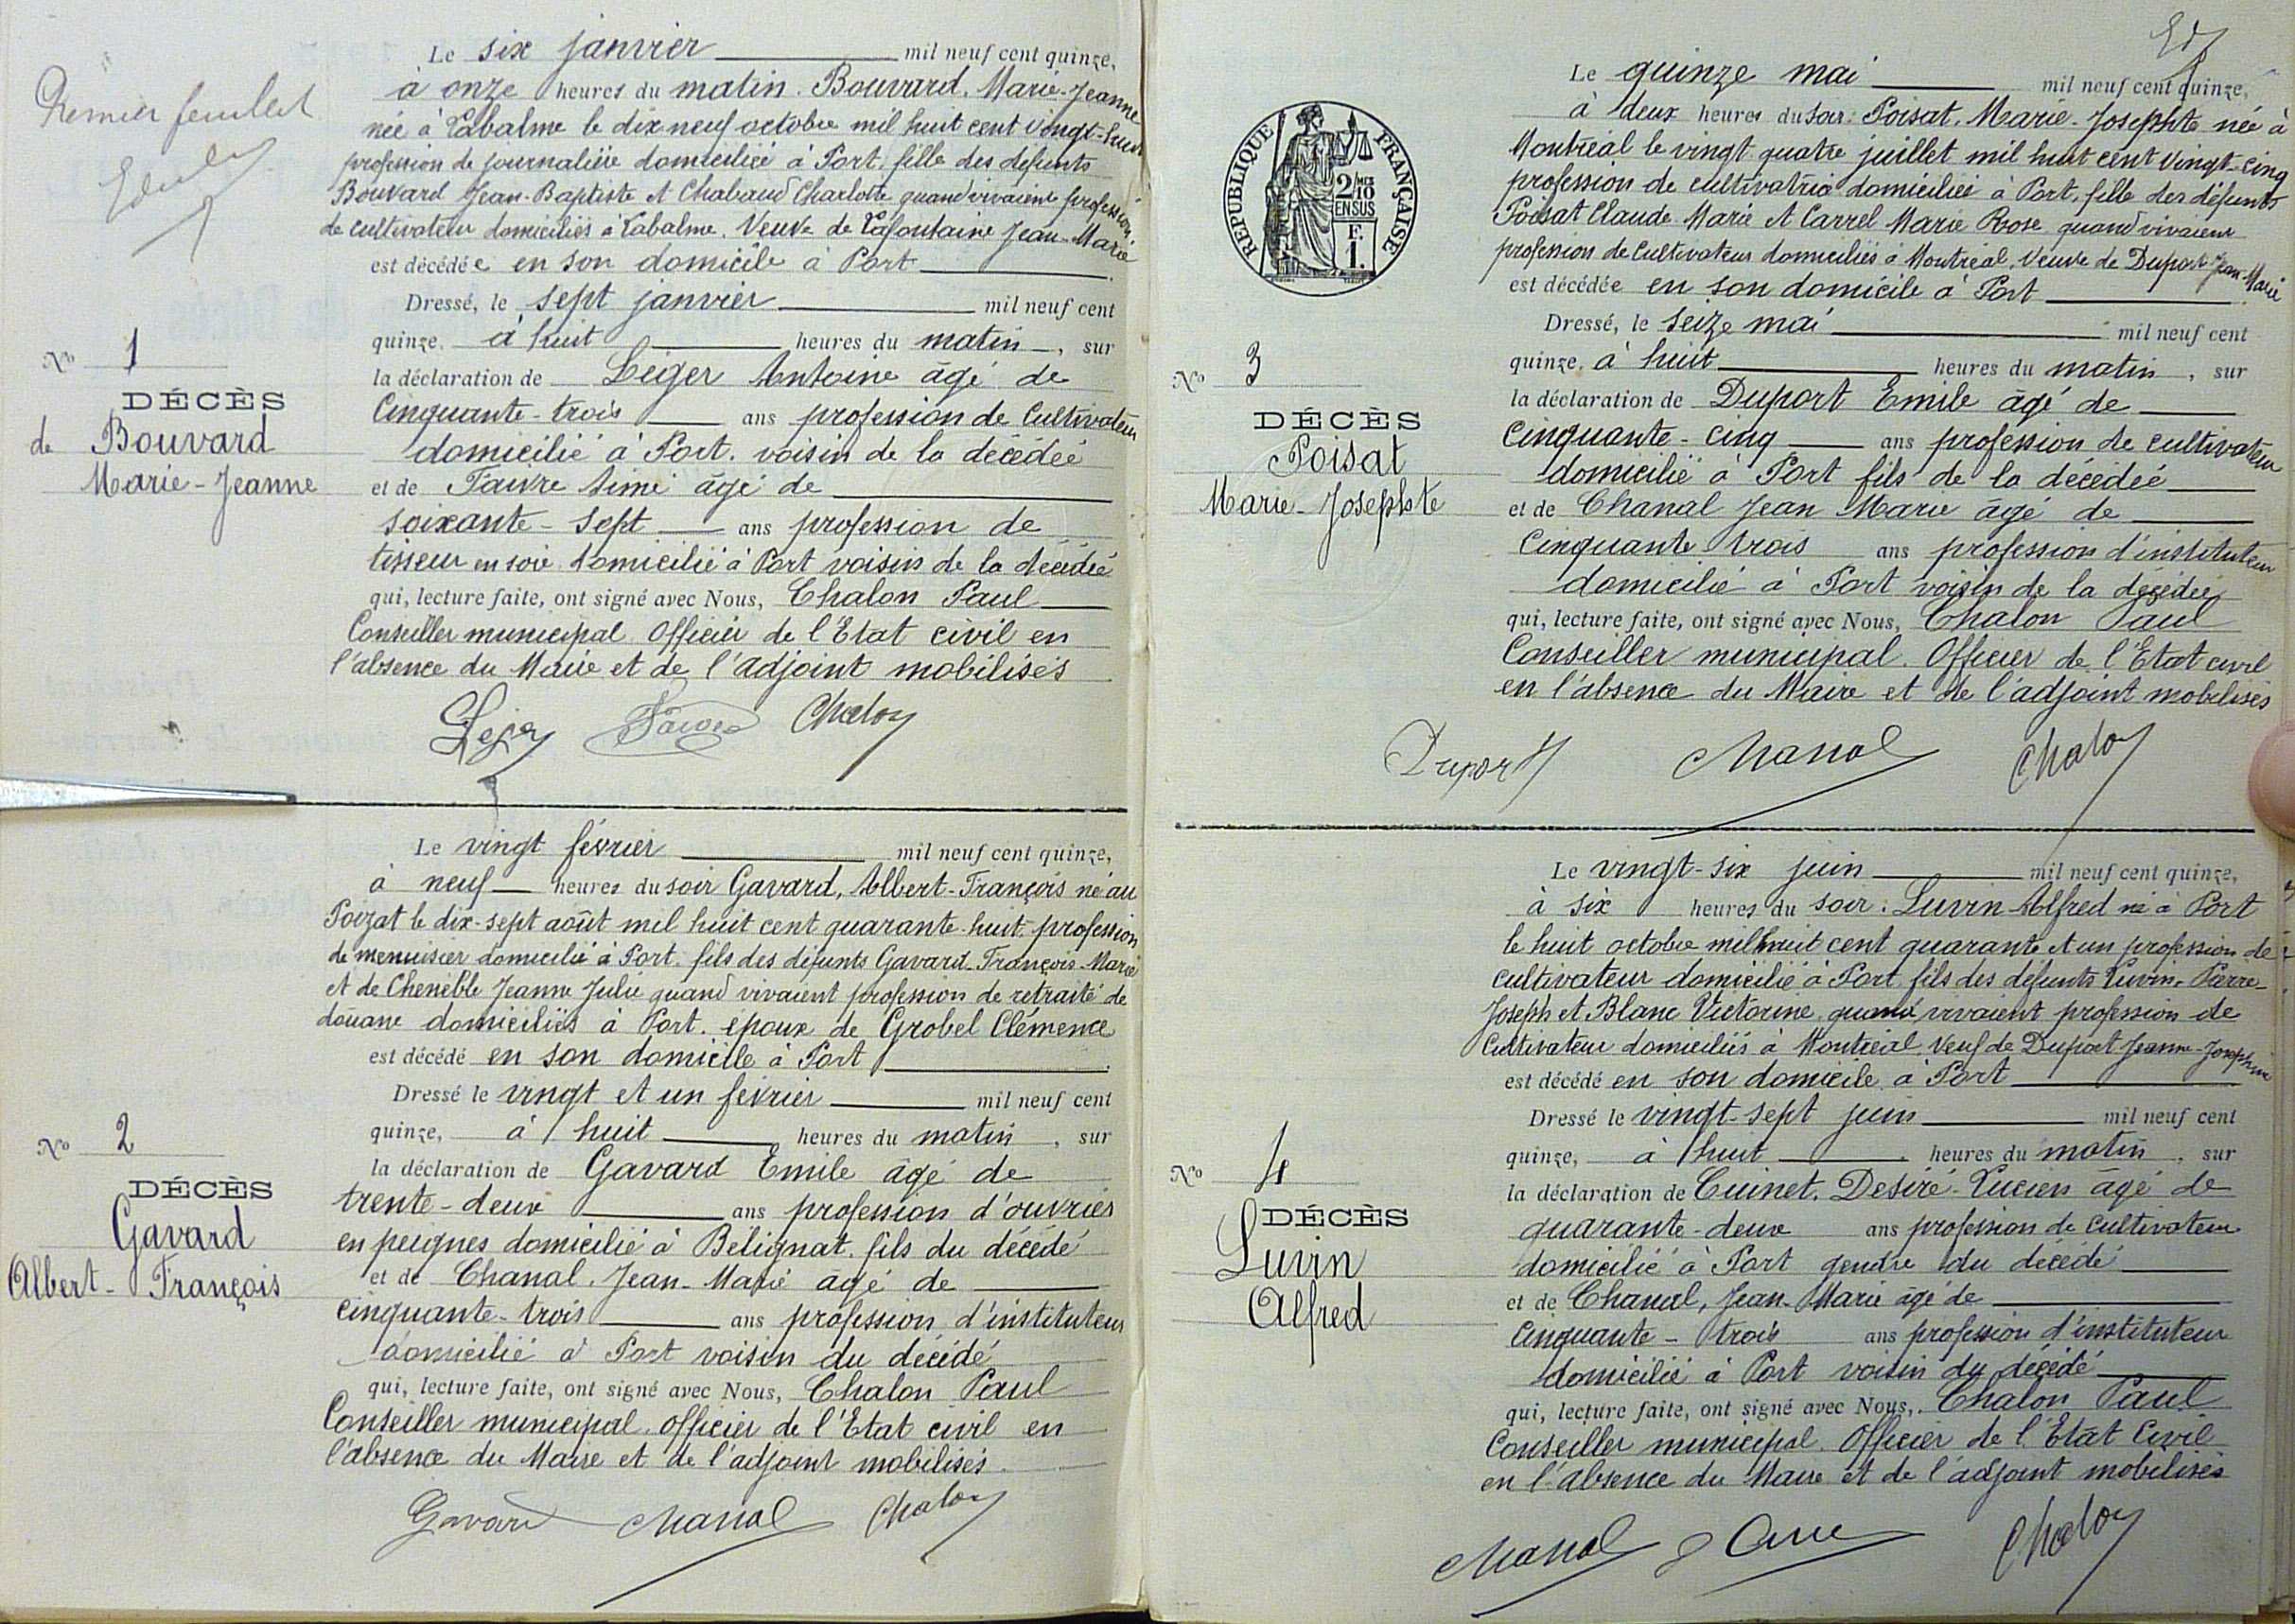 Premier feuillet
Le six janvier mil neuf cent quinze,
à onze heures du matin. Bouvard, Marie-Jeanne
née à Labalme le dix neuf octobre mil huit cent vingt-huit
profession de journalière domiciliée à Port, fille des défunts
Bouvard Jean-Baptiste et Chabaud Charlotte quand vivaient profession
de cultivateur domiciliés à Labalme. Veuve de Lafontaine Jean-Marie
est décédée en son domicile à Port
Dressé, le sept janvier mil neuf cent
quinze, à huit heures du matin, sur
la déclaration de Léger Antoine âgé de
Cinquante-trois ans profession de Cultivateur
domicilié à Port. voisin de la décédée
et de Faivre Aimé âgé de
soixante-sept ans profession de
tisseur en soie domicilié à Port voisin de la décédée
qui, lecture faite, ont signé avec Nous, Chalon Paul
Conseiller municipal Officier de l'Etat civil en
l'absence du Maire et de l'adjoint mobilisés
Chalon
No 1
DÉCÈS
de Bouvard
Marie-Jeanne
Le vingt février mil neuf cent quinze,
à neuf heures du soir Gavard, Albert-François né au
Poizat le dix-sept août mil huit cent quarante-huit profession
de menuisier domicilié à Port. fils des défunts Gavard François-Marie
et de Cheneble Jeanne Julie quand vivaient profession de retraité de
douane domiciliés à Port. epoux de Grobel Clémence
est décédé en son domicile à Port
Dressé le vingt et un février mil neuf cent
quinze, à huit heures du matin, sur
la déclaration de Gavard Emile âgé de
trente-deux ans profession d'ouvrier
en peignes domicilié à Bélignat. fils du décédé
et de Chanal. Jean-Marie âgé de
cinquante-trois ans profession d'instituteur
domicilié à Port voisin du décédé
qui, lecture faite, ont signé avec Nous, Chalon Paul
Conseiller municipal. Officier de l'Etat civil en
l'absence du Maire et de l'adjoint mobilisés.
Gavard Chanal Chalon
No 2
DÉCÈS
Gavard
Albert-François
RÉPUBLIQUE FRANÇAISE
2/10 MES
EN SUS
F.
1.
Le quinze mai mil neuf cent quinze,
à deux heures du soir: Poisat, Marie-Josephte née à
Montréal le vingt quatre juillet mil huit cent vingt-cinq
profession de cultivatrice domiciliée à Port, fille des défunts
Poisat Claude-Marie et Carrel Marie Rose quand vivaient
profession de Cultivateur domiciliés à Montréal. Veuve de Duport Jean-Marie
est décédée en son domicile à Port
Dressé, le seize mai mil neuf cent
quinze, à huit heures du matin, sur
la déclaration de Duport Emile âgé de
Cinquante-cinq ans profession de cultivateur
domicilié à Port fils de la décédée
et de Chanal Jean Marie âgé de
Cinquante trois ans profession d'instituteur
domicilié à Port voisin de la décédée
qui, lecture faite, ont signé avec Nous, Chalon Paul
Conseiller municipal. Officier de l'Etat civil
en l'absence du Maire et de l'adjoint mobilisés
Duport Chanal Chalon
No 3
DÉCÈS
Poisat
Marie-Josephte
Le vingt-six juin mil neuf cent quinze,
à six heures du soir: Luvin Alfred né à Port
le huit octobre mil huit cent quarante et un profession de
cultivateur domicilié à Port fils des défunts Luvin Pierre-
Joseph et Blanc Victorine quand vivaient profession de
Cultivateur domiciliés à Montréal veuf de Duport Jeanne-Josephine
est décédé en son domicile à Port
Dressé le vingt-sept juin mil neuf cent
quinze, à huit heures du matin, sur
la déclaration de Cuinet, Desiré-Lucien âgé de
quarante-deux ans profession de cultivateur
domicilié à Port gendre du décédé
et de Chanal, Jean-Marie âgé de
Cinquante-trois ans profession d'instituteur
domicilié à Port voisin du décédé
qui, lecture faite, ont signé avec Nous, Chalon Paul
Conseiller municipal. Officier de l'Etat Civil
en l'absence du Maire et de l'adjoint mobilisés
Chanal Chalon
No 4
DÉCÈS
Luvin
Alfred